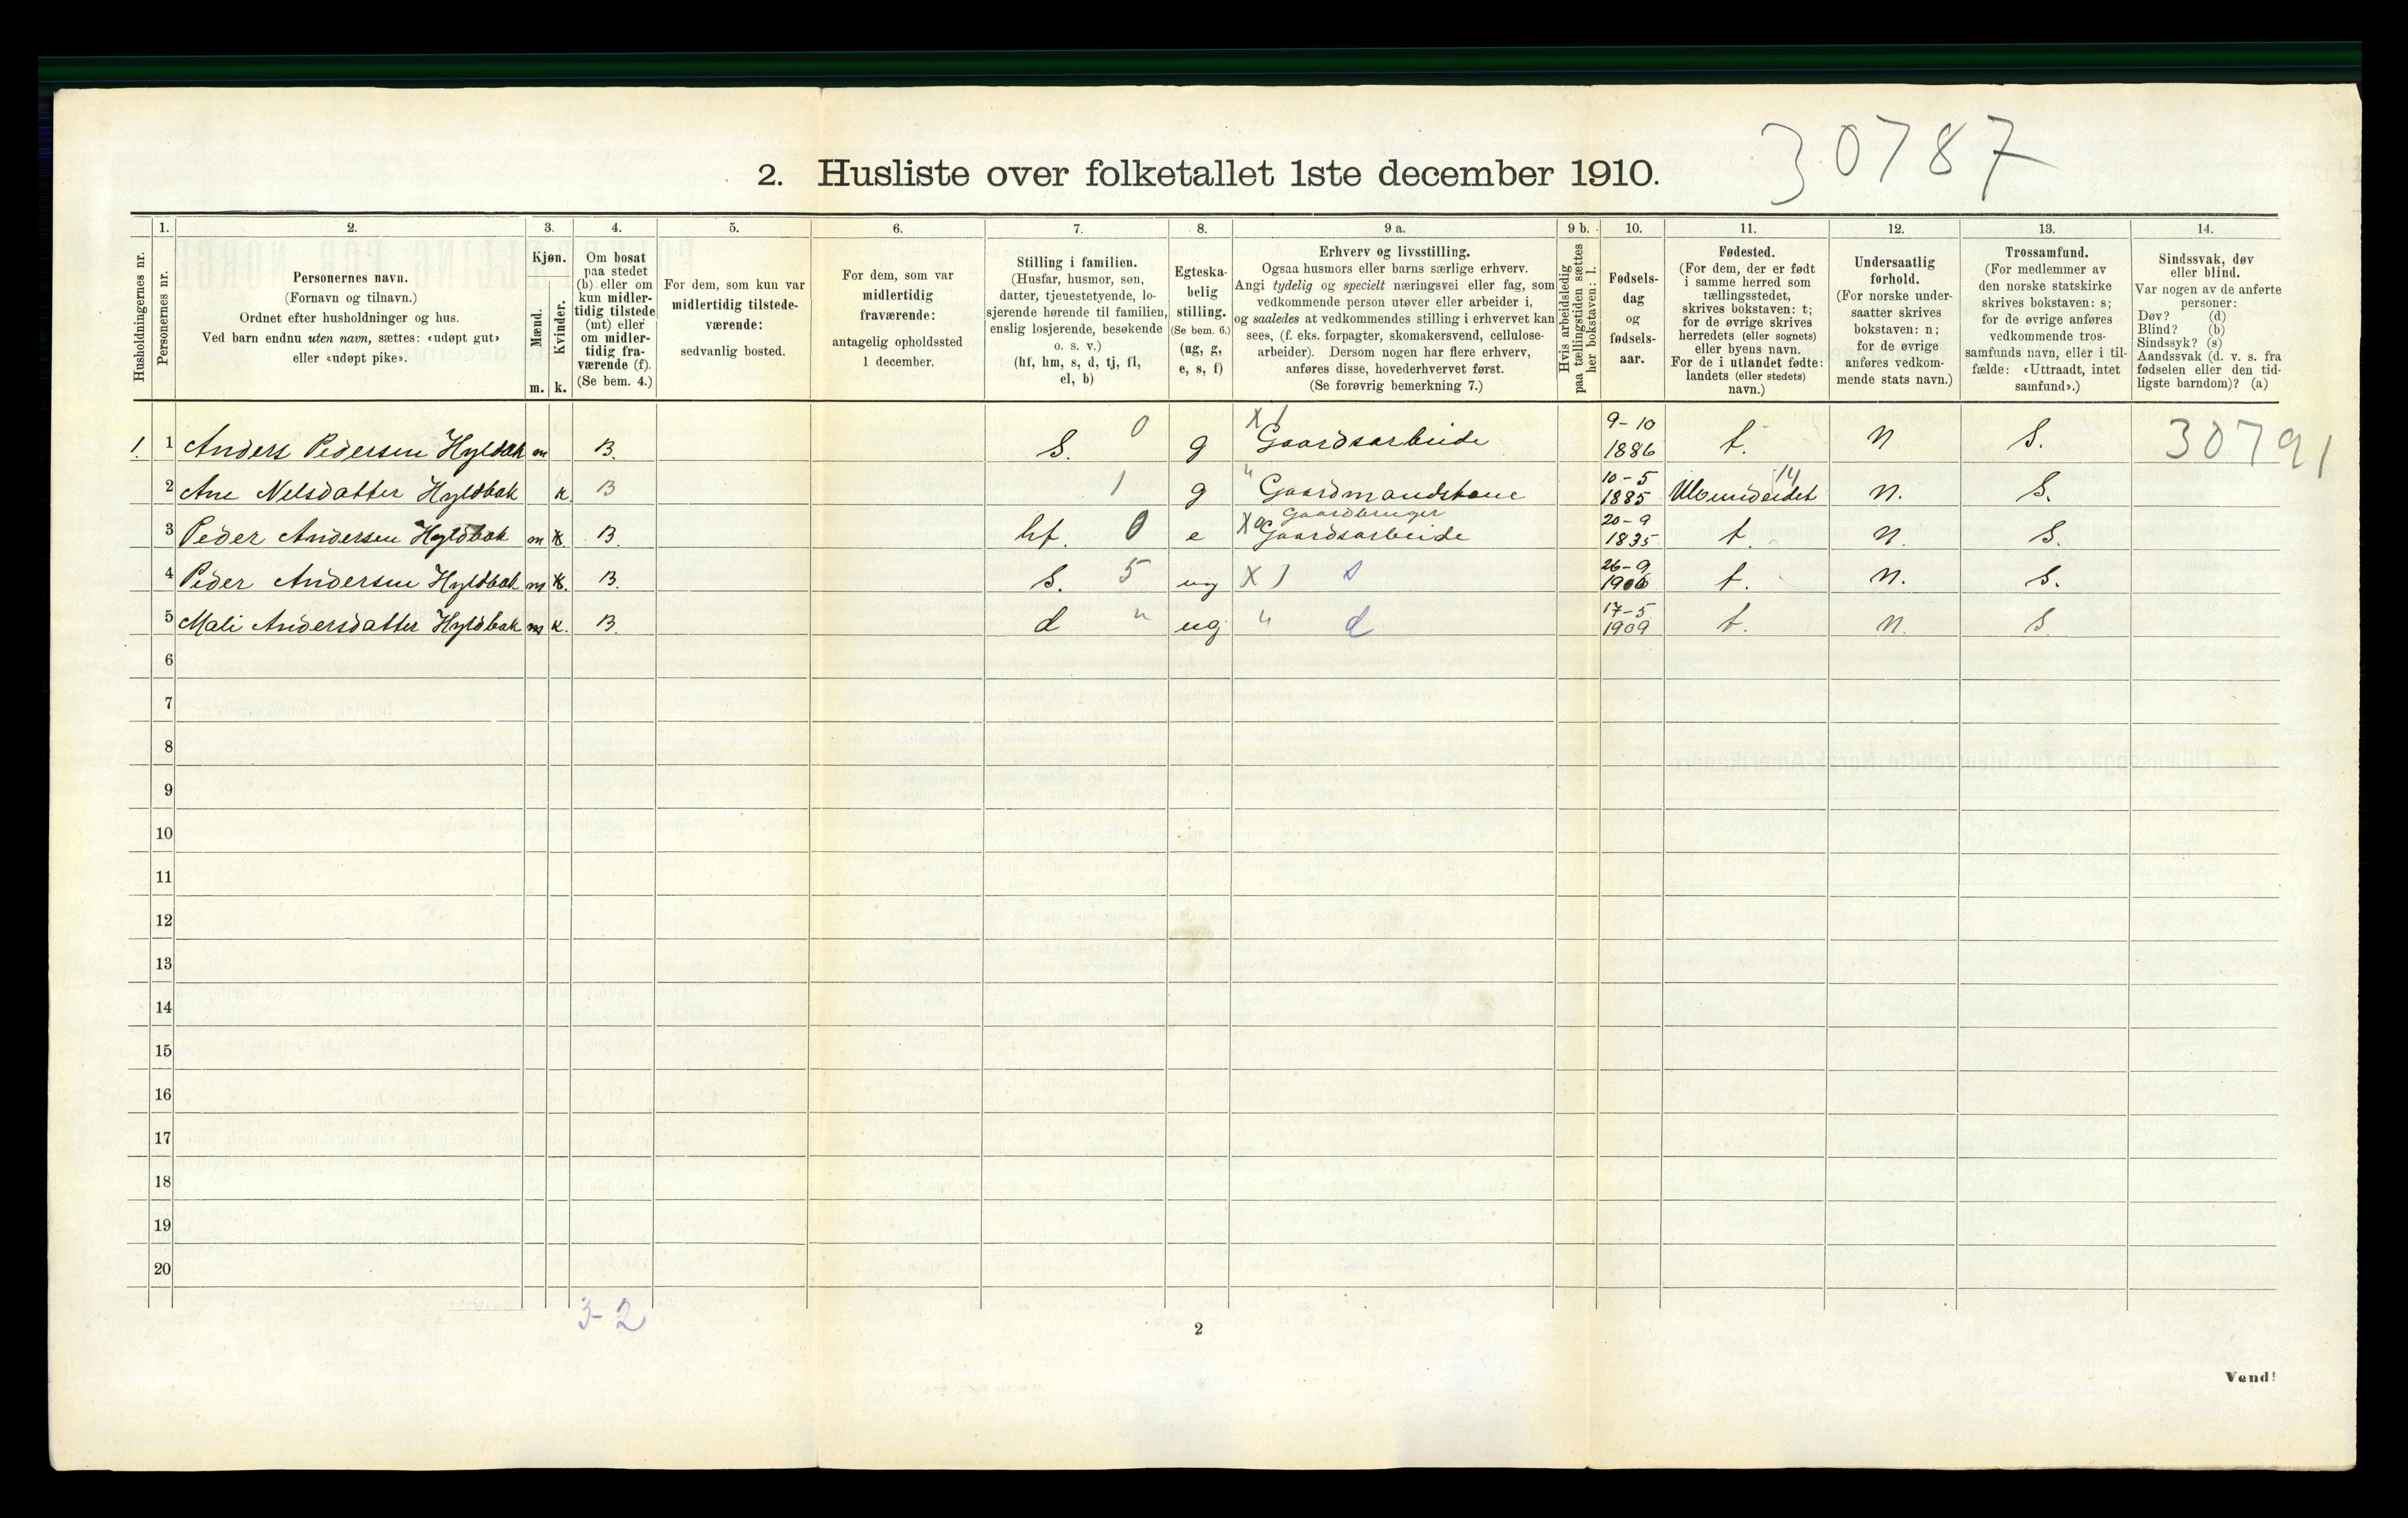 30787
2. Husliste over folketallet 1ste december 1910.
Husholdningernes nr.
1.
Personernes nr.
2.
Personernes navn.
(Fornavn og tilnavn.)
Ordnet efter husholdninger og hus.
Ved barn endnu uten navn, sættes: «udøpt gut»
eller «udøpt pike».
3.
Kjøn.
Mænd.
Kvinder.
m. k.
4.
Om bosat
paa stedet
(b) eller om
kun midler-
tidig tilstede
(mt) eller
om midler-
tidig fra-
værende (f).
(Se bem. 4.)
5.
For dem, som kun var
midlertidig tilstede-
værende:
sedvanlig bosted.
6.
For dem, som var
midlertidig
fraværende:
antagelig opholdssted
1 december.
7.
Stilling i familien.
(Husfar, husmor, søn,
datter, tjenestetyende, lo-
sjerende hørende til familien,
enslig losjerende, besøkende
o. s. v.)
(hf, hm, s, d, tj, fl,
el, b)
8.
Egteska-
belig
stilling.
(Se bem. 6.)
(ug, g,
e, s, f)
9 a.
Erhverv og livsstilling.
Ogsaa husmors eller barns særlige erhverv.
Angi tydelig og specielt næringsvei eller fag, som
vedkommende person utøver eller arbeider i,
og saaledes at vedkommendes stilling i erhvervet kan
sees, (f. eks. forpagter, skomakersvend, cellulose-
arbeider). Dersom nogen har flere erhverv,
anføres disse, hovederhvervet først.
(Se forøvrig bemerkning 7.)
9 b.
Hvis arbeidsledig
paa tællingstiden sættes
her bokstaven: l.
10.
Fødsels-
dag
og
fødsels-
aar.
11.
Fødested.
(For dem, der er født
i samme herred som
tællingsstedet,
skrives bokstaven: t;
for de øvrige skrives
herredets (eller sognets)
eller byens navn.
For de i utlandet fødte:
landets (eller stedets)
navn.)
12.
Undersaatlig
forhold.
(For norske under-
saatter skrives
bokstaven: n;
for de øvrige
anføres vedkom-
mende stats navn.)
13.
Trossamfund.
(For medlemmer av
den norske statskirke
skrives bokstaven: s;
for de øvrige anføres
vedkommende tros-
samfunds navn, eller i til-
fælde: «Uttraadt, intet
samfund».)
14.
Sindssvak, døv
eller blind.
Var nogen av de anførte
personer:
Døv? (d)
Blind? (b)
Sindssyk? (s)
Aandssvak (d. v. s. fra
fødselen eller den tid-
ligste barndom)? (a)
1. 1 Anders Pedersen Hyldbak m B. S. 0 g X 1 Gaardsarbeide 9-10 1886 t. n S. 30791
2 Ane Nelsdatter Hyldbak k. B 1 g " Gaardmandskone 10-5 1885 14 n. S.
3 Peder Andersen Hyldbak m k. B. hf. 0 e X Gaardbruger Gaardsarbeide 20-9 1835 t. n. S.
4 Peder Andersen Hyldbak m k. B. S. 5 ug X 1 s 26-9 1906 t. n. S.
5 Mali Andersdatter Hyldbak m k. B. d " ug " d 17-5 1909 t. n. S
6
7
8
9
10
11
12
13
14
15
16
17
18
19
20
3-2
2
Vend!